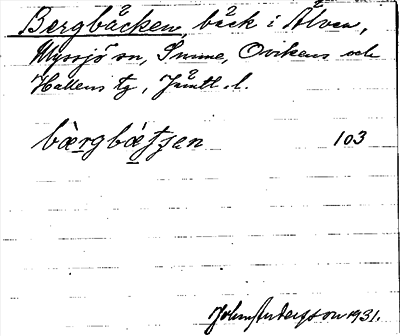 Bergbäcken, bäck i Älven,
Myssjö sn, Sunne, Ovikens och
Hallens tg, Jämtl. l.
bær̀gbæ̀tʃen 103
John Anderson 1931.